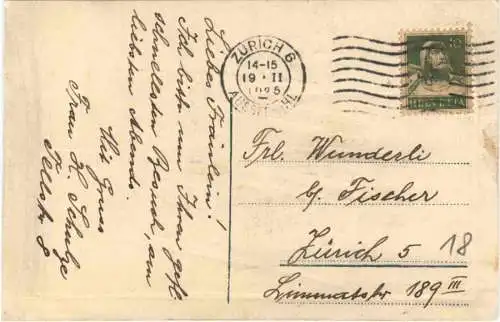 Liebes Fräulein!
Ich bitte um Ihren gefl.
schnellsten Besuch, am
liebsten Abends.
Mit Gruss
Frau H. Schulze
ZÜRICH 6
14-15
19 · II
1925
HELVETIA
Frl. Wunderli
b/ Fischer
Zürich 5
Limmatstr 189 III
18